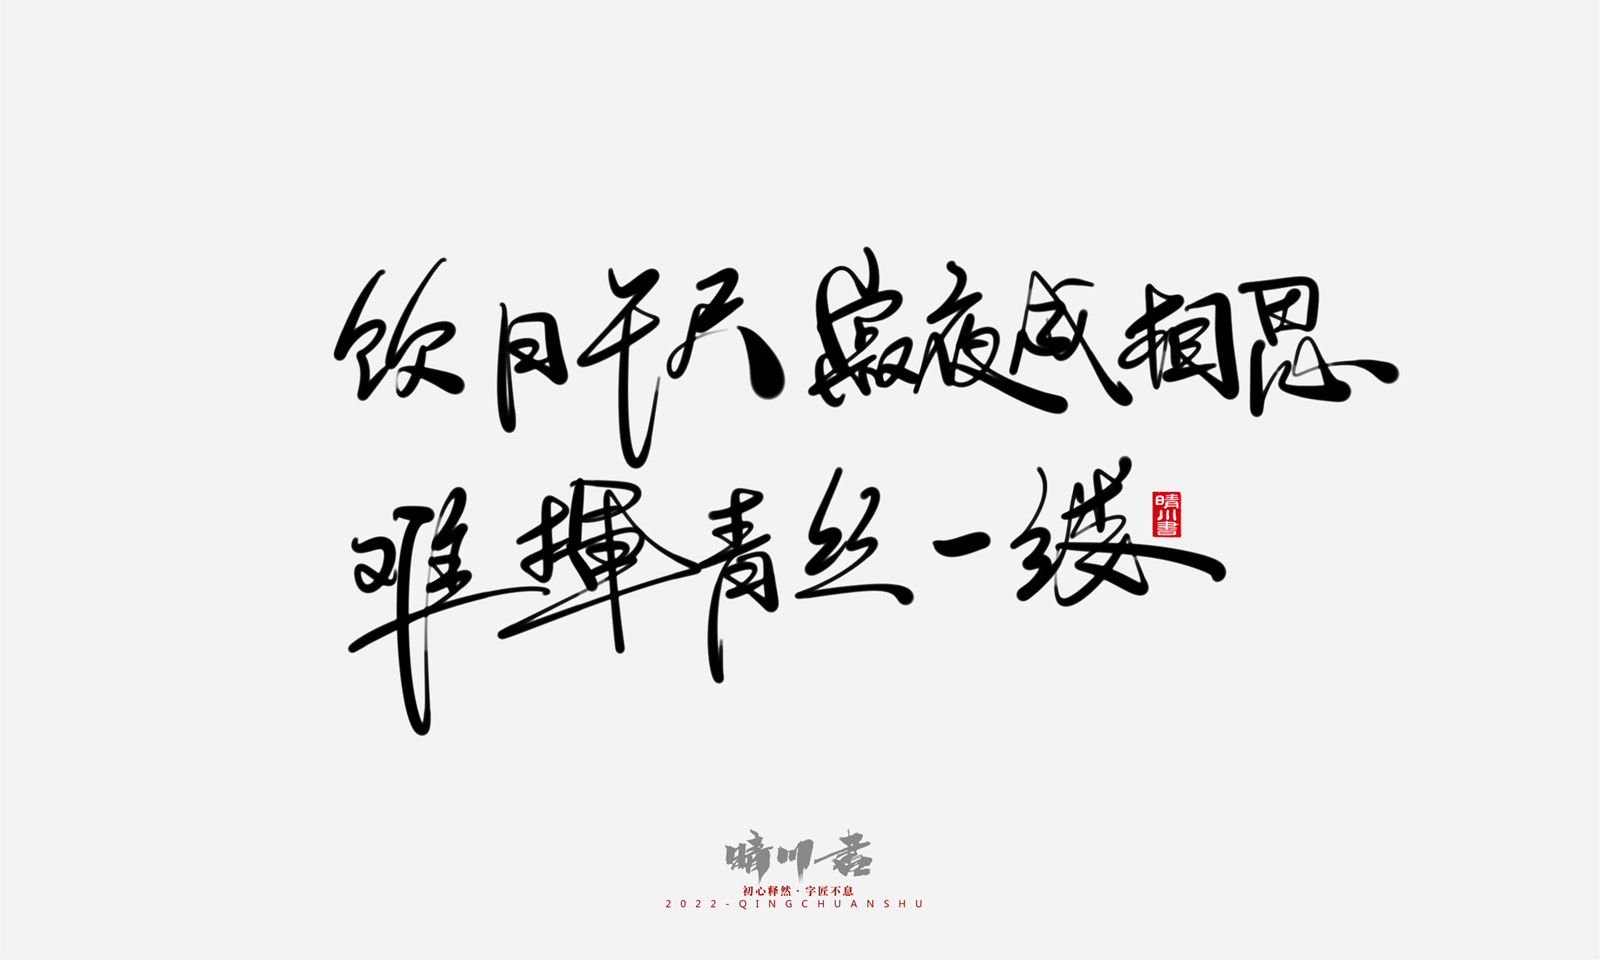 饮月千尺 寂夜成相思
难挥青丝一缕
晴川書
晴川書
初心释然·字匠不息
2022-QINGCHUANSHU